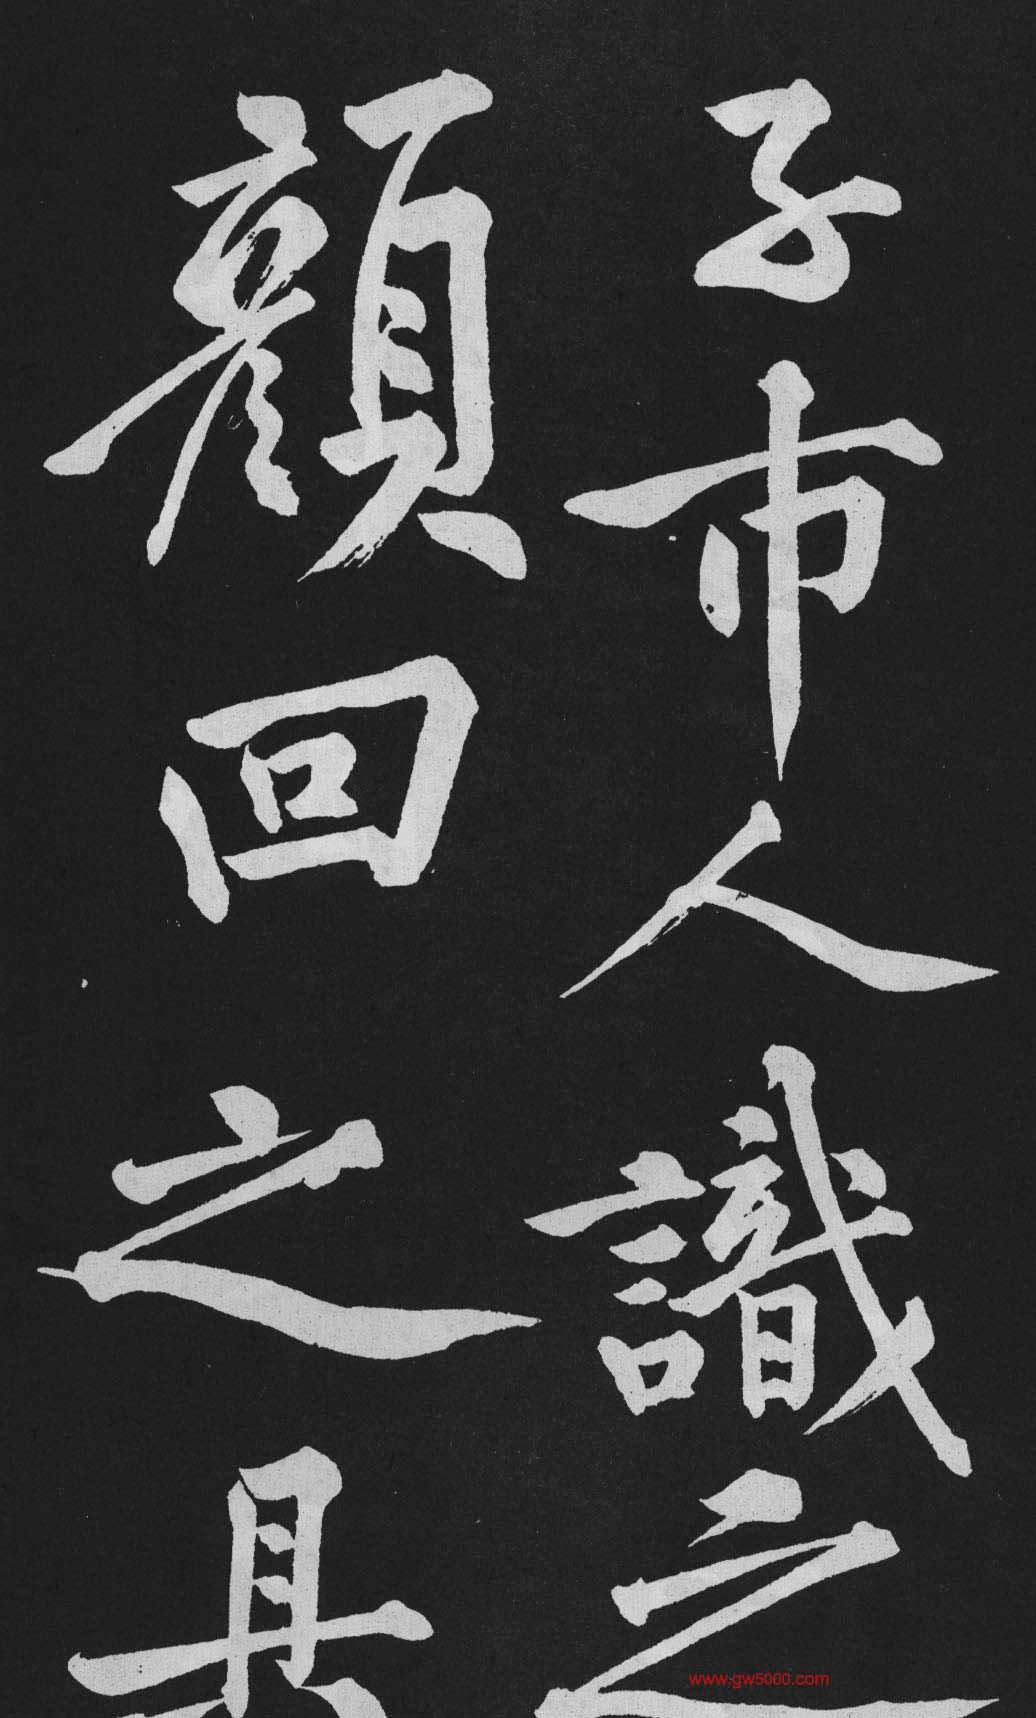 子市人識之
顏回之具
www.gw5000.com